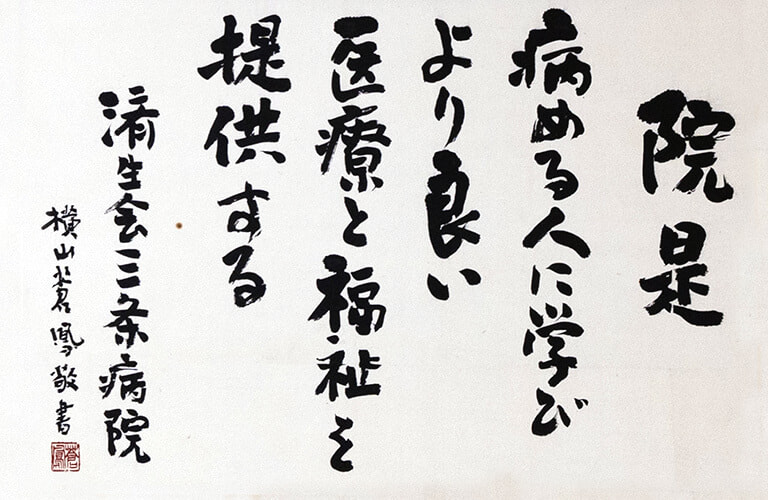 院是
病める人に学び
より良い
医療と福祉を
提供する
済生会三条病院
横山蒼鳳敬書
蒼鳳